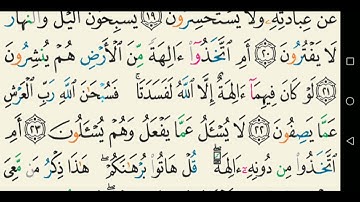 عَنْ عِبَادَتِهِۦ وَلَا يَسْتَحْسِرُونَ ١٩ يُسَبِّحُونَ ٱلَّيْلَ وَٱلنَّهَارَ
لَا يَفْتُرُونَ ٢٠ أَمِ ٱتَّخَذُوٓا۟ ءَالِهَةً مِّنَ ٱلْأَرْضِ هُمْ يُنشِرُونَ
٢١ لَوْ كَانَ فِيهِمَآ ءَالِهَةٌ إِلَّا ٱللَّهُ لَفَسَدَتَا ۚ فَسُبْحَٰنَ ٱللَّهِ رَبِّ ٱلْعَرْشِ
عَمَّا يَصِفُونَ ٢٢ لَا يُسْـَٔلُ عَمَّا يَفْعَلُ وَهُمْ يُسْـَٔلُونَ ٢٣ أَمِ
ٱتَّخَذُوا۟ مِن دُونِهِۦٓ ءَالِهَةً ۖ قُلْ هَاتُوا۟ بُرْهَٰنَكُمْ ۖ هَٰذَا ذِكْرُ مَن مَّعِىَ